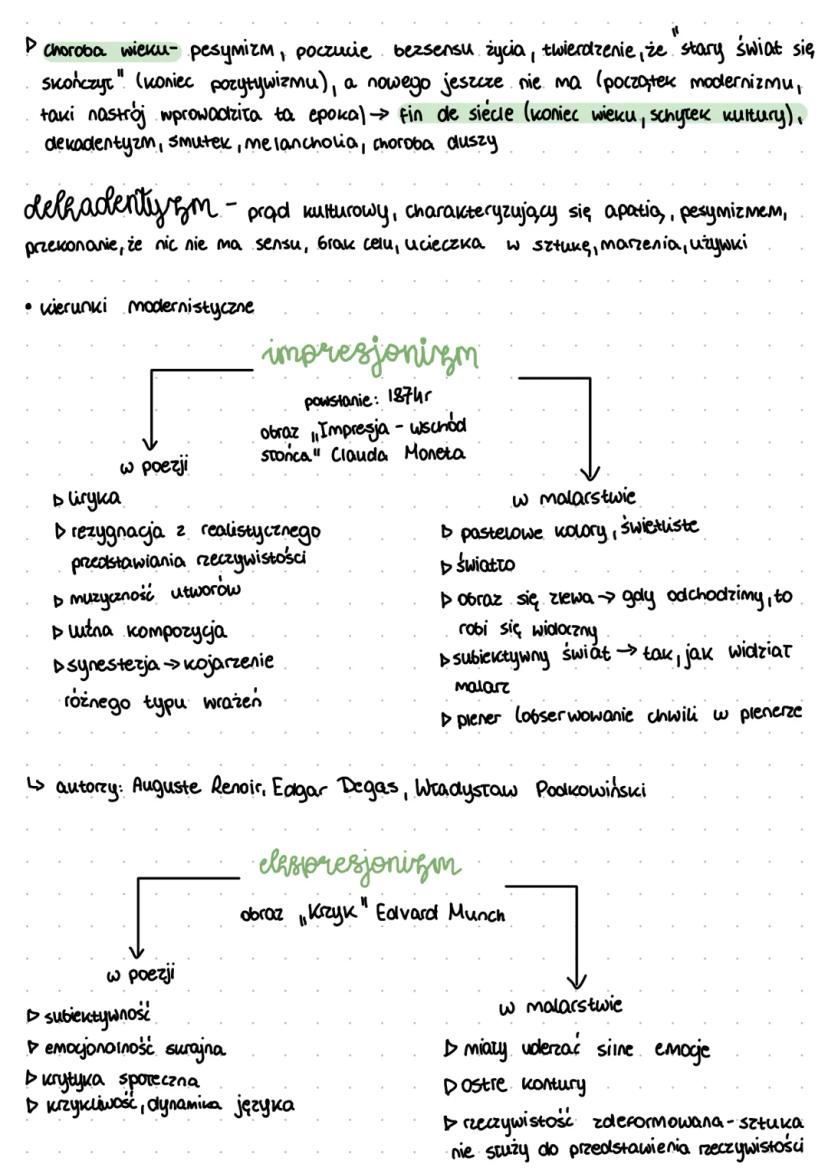 ▷ choroba wieku- pesymizm, poczucie bezsensu życia, twierdzenie, że "stary świat się
skończył" (koniec pozytywizmu), a nowego jeszcze nie ma (początek modernizmu,
taki nastrój wprowadziła ta epoka) → fin de siècle (koniec wieku, schyłek kultury),
dekadentyzm, smutek, melancholia, choroba duszy
dekadentyzm - prąd kulturowy, charakteryzujący się apatią, pesymizmem,
przekonanie, że nic nie ma sensu, brak celu, ucieczka w sztukę, marzenia, używki
• kierunki modernistyczne
impresjonizm
powstanie: 1874r
obraz „Impresja - wschód
słońca" Clauda Moneta
w poezji
▷ liryka
▷ rezygnacja z realistycznego
przedstawiania rzeczywistości
▷ muzyczność utworów
▷ luźna kompozycja
▷ synestezja → kojarzenie
różnego typu wrażeń
w malarstwie
▷ pastelowe kolory, świetliste
▷ światło
▷ obraz się zlewa → gdy odchodzimy, to
robi się widoczny
▷ subiektywny świat → tak, jak widział
malarz
▷ plener (obserwowanie chwili w plenerze
↳ autorzy: Auguste Renoir, Edgar Degas, Władysław Podkowiński
ekspresjonizm
obraz „Krzyk" Edvard Munch
w poezji
▷ subiektywność
▷ emocjonalność skrajna
▷ krytyka społeczna
▷ krzykliwość, dynamika języka
w malarstwie
▷ miały uderzać silne emocje
▷ ostre kontury
▷ rzeczywistość zdeformowana - sztuka
nie służy do przedstawienia rzeczywistości